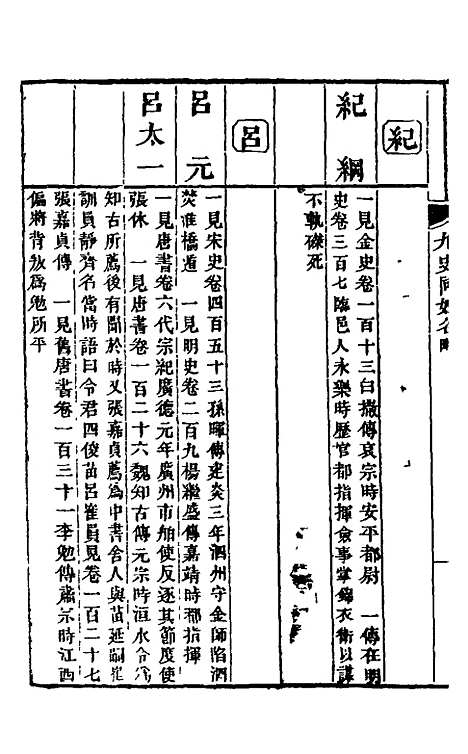 九史同姓名略
紀
紀綱
一見金史卷一百十三白撒傳哀宗時安平都尉　一傳在明
史卷三百七臨邑人永樂時歷官都指揮僉事掌錦衣衛以謀
不軌磔死
呂
呂元
一見宋史卷四百五十三孫暉傳建炎三年泗州守金師陷泗
焚淮橋道　一見明史卷二百九楊繼盛傳嘉靖時都指揮
呂太一
一見唐書卷六代宗紀廣德元年廣州市舶使反逐其節度使
張休　一見唐書卷一百二十六魏知古傳元宗時洹水令為
知古所薦後有聞於時又張嘉貞薦為中書舍人與苗延嗣崔
訓員靜齊名當時語曰令君四俊苗呂崔員見卷一百二十七
張嘉貞傳　一見舊唐書卷一百三十一李勉傳肅宗時江西
偏將背叛為勉所平